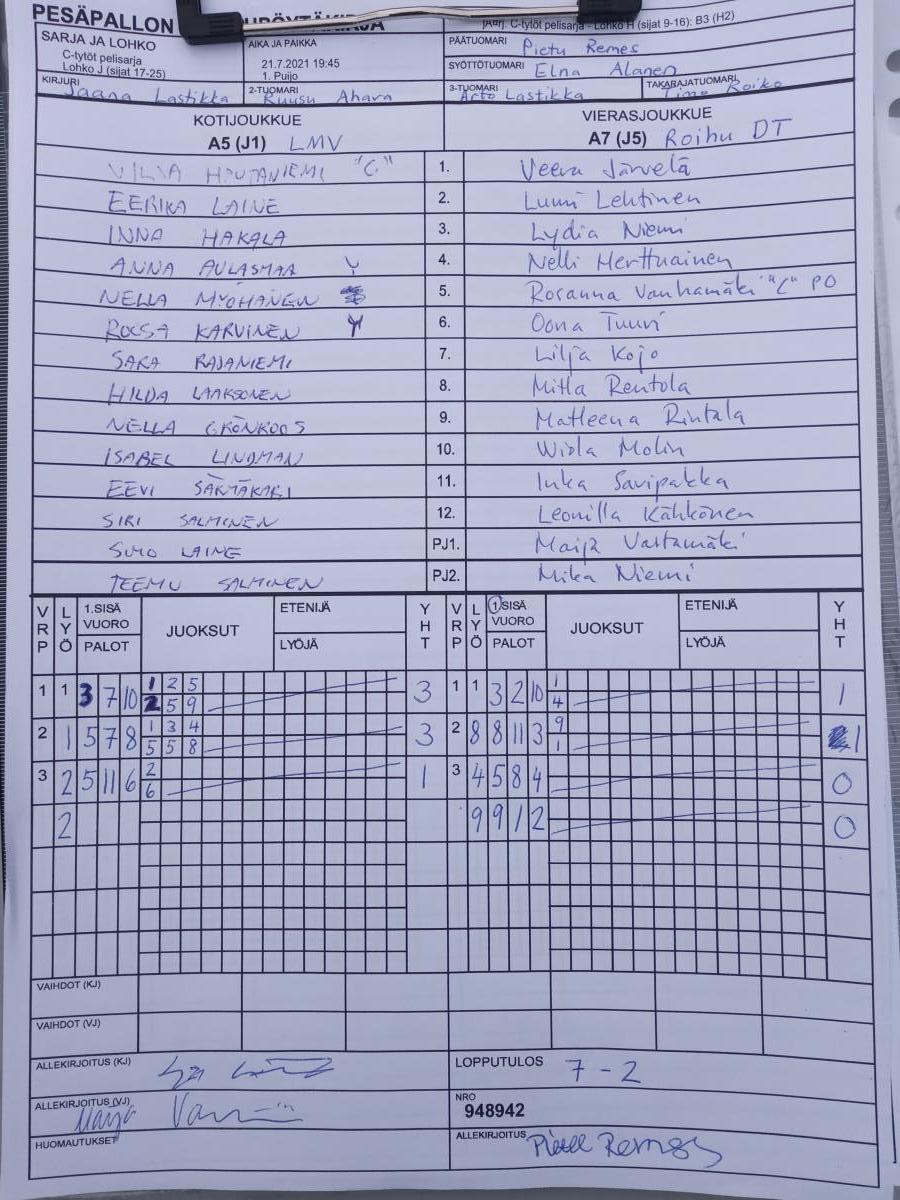 PESÄPALLON
JATKI. C-tytöt pelisarja - Lohko H (sijat 9-16): B3 (H2)
SARJA JA LOHKO
C-tytöt pelisarja
Lohko J (sijat 17-25)
AIKA JA PAIKKA
21.7.2021 19:45
1. Puijo
PÄÄTUOMARI Pietu Remes
SYÖTTÖTUOMARI Elna Alanen
KIRJURI Jaana Lastikka
2-TUOMARI Ruusu Ahava
3-TUOMARI Arto Lastikka
TAKARAJATUOMARI Timo Roiko
KOTIJOUKKUE
A5 (J1) LMV
VIERASJOUKKUE
A7 (J5) Roihu DT
VILJA HAUTANIEMI "C" 1. Veera Järvelä
EERIKA LAINE 2. Lumi Lehtinen
INNA HAKALA 3. Lydia Niemi
ANNA AULASMAA Y 4. Nelli Herttuainen
NELLA MYÖHÄNEN 5. Rosanna Vanhamäki "C" PO
ROOSA KARVINEN Y 6. Oona Tuuri
SARA RAJANIEMI 7. Lilja Kojo
HILDA LAAKSONEN 8. Milla Rentola
NELLA GRÖNROOS 9. Matleena Rintala
ISABEL LINDMAN 10. Wiola Molin
EEVI SÄKTÄKARI 11. Inka Savipakka
SIRI SALMINEN 12. Leonilla Kähkönen
SIMO LAINE PJ1. Maija Vastamäki
TEEMU SALMINEN PJ2. Mika Niemi
VRP LYÖ 1.SISÄ VUORO PALOT JUOKSUT ETENIJÄ LYÖJÄ YHT VRP LYÖ 1.SISÄ VUORO PALOT JUOKSUT ETENIJÄ LYÖJÄ YHT
1 1 3 7 10 1 2 5 3 1 1 3 2 10 1 1
2 5 9 4
2 1 5 7 8 1 3 4 3 2 8 8 11 3 9 1
5 5 8 1
3 2 5 11 6 2 1 3 4 5 8 4 0
6
2 9 9 1 2 0
VAIHDOT (KJ)
VAIHDOT (VJ)
ALLEKIRJOITUS (KJ)
LOPPUTULOS 7 - 2
ALLEKIRJOITUS (VJ) Maija
NRO
948942
HUOMAUTUKSET
ALLEKIRJOITUS